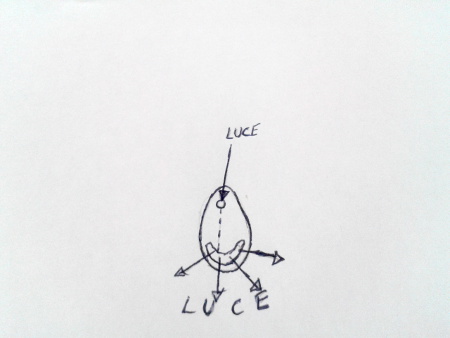 LUCE
LUCE